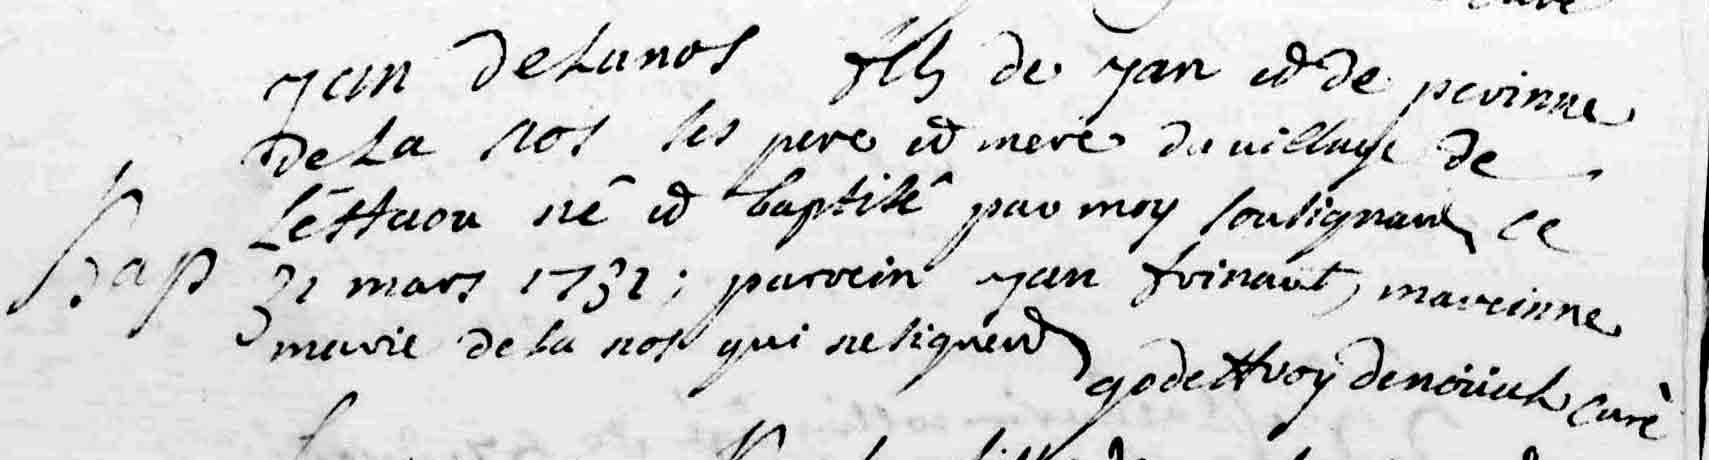 yan delanos fils de yan et de perinne
de La nos ses pere et mere du village de
né et baptisé par moy sousignant ce
Bap
31 mars 1731 ; parrein yan frinault, mareinne
marie dela nos qui ne signent
godeffroy curé